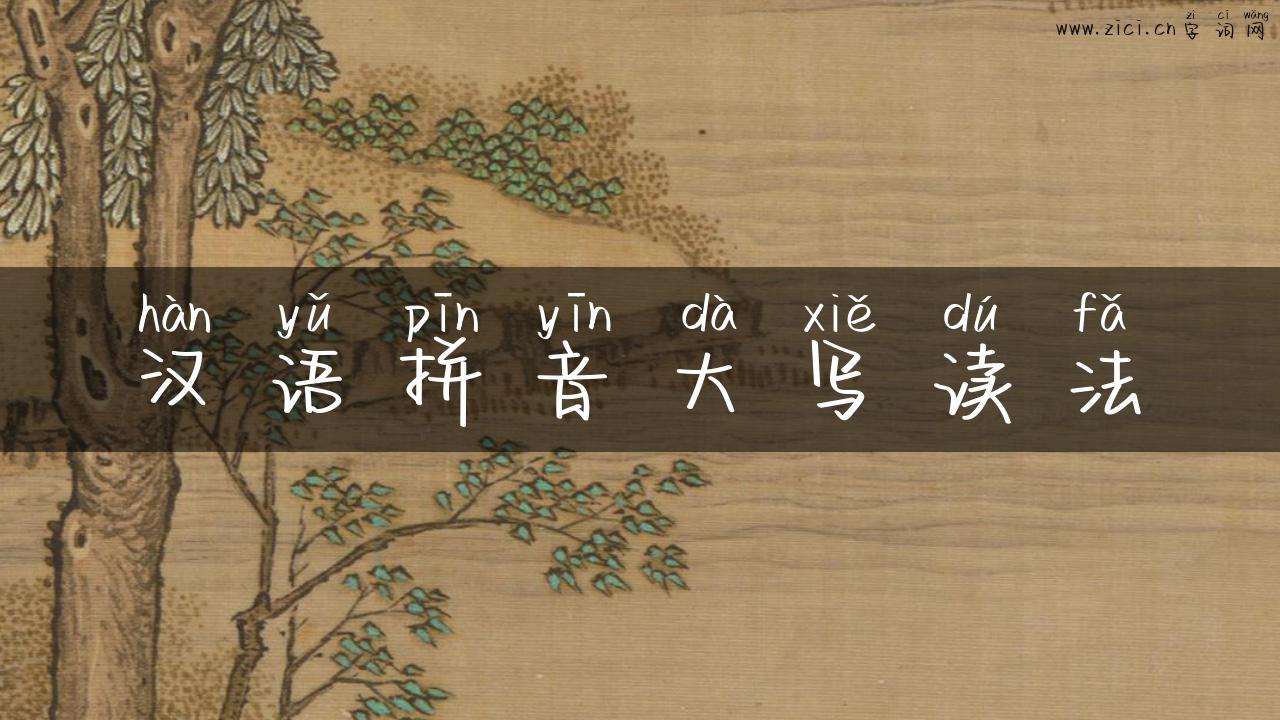 zì cí wǎng
www.zici.cn 字词网
hàn yǔ pīn yīn dà xiě dú fǎ
汉语拼音大写读法